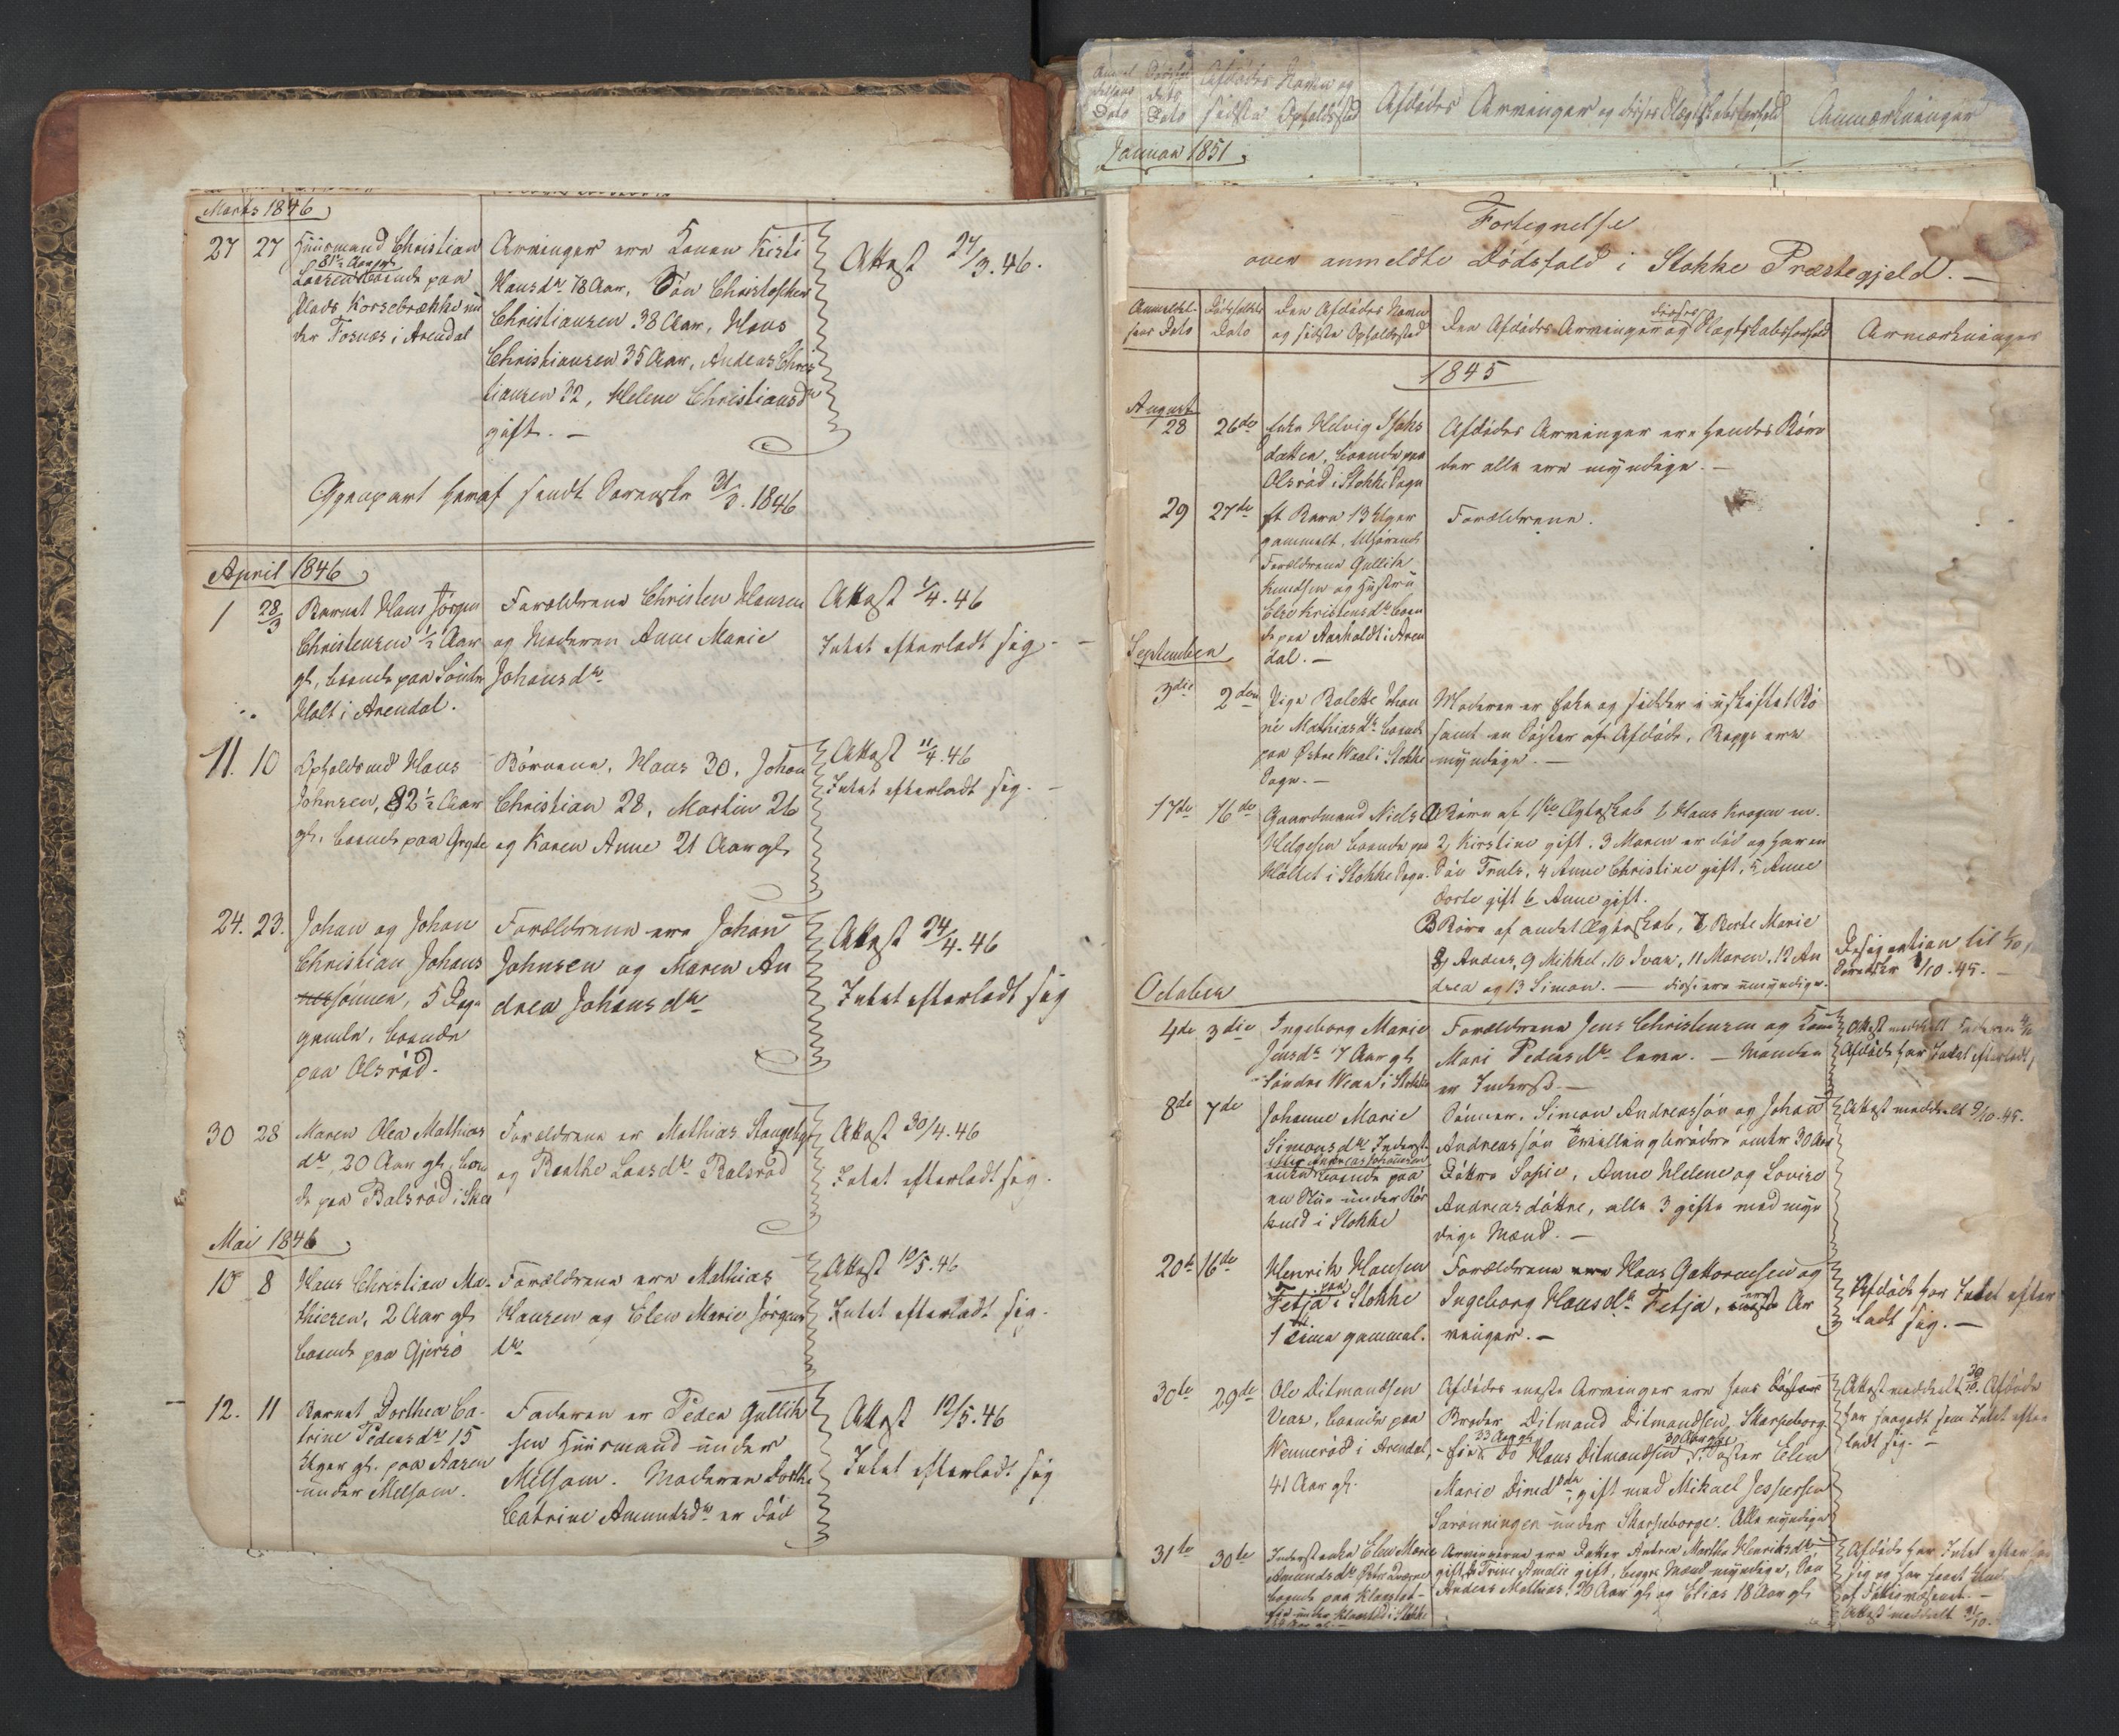 Marts 1846
27 27 Huusmand Christian
81½ Aar gl
Larsen boende paa
Plads Korsebrække un
der Fosnæs i Arendal
Arvinger ere Konen Kirsti
Hansdr 78 Aar, Søn Christopher
Christiansen 38 Aar, Hans
Christiansen 35 Aar, Andreas Chris
tiansen 32, Helene Christiansdr
gift. —
Attest 27/3.46.
Gjenpart heraf sendt Sorenskr 31/3. 1846
April 1846
1 28/3 Barnet Hans Jørgen
Christensen ½ Aar
gl, boende paa Søndre
Holt i Arendal.
Forældrene Christen Hansen
og Moderen Anne Marie
Johansdr
Attest 1/4.46
Intet efterladt sig. —
11. 10 Opholdsmd Hans
Johnsen, 82½ Aar
gl, boende paa Gryte
Børnene, Hans 30, Johan
Christian 28, Martin 26
og Karen Anne 21 Aar gl
Attest 11/4.46
Intet efterladt sig. —
24. 23. Johan og Johan
Christian Johans
sønner, 5 Dage
gamle, boende
paa Olsrød.
Forældrene ere Johan
Johnsen og Maren An
drea Johansdr
Attest 24/4.46
Intet efterladt sig
30 28 Maren Olea Mathias
dr, 20 Aar gl, boen
de paa Balsrød i Skee
Forældrene er Mathias
og Benthe Larsdr Balsrød
Attest 30/4.46
Intet efterladt sig.
Mai 1846
10 8 Hans Christian Ma-
thiesen, 2 Aar gl
boende paa Gjersø
Forældrene ere Mathias
Hansen og Elen Marie Jørgens
dr
Attest 10/5.46
Intet efterladt sig.
12. 11 Barnet Dorthea Ca-
trine Pedersdr 15
Uger gl. paa Aasen
under Melsom.
Faderen er Peder Gullik
sen Huusmand under
Melsom. Moderen Dorthe
Catrine Amundsdr er død
Attest 12/5.46
Intet efterladt sig
Anmel
delsens
Dato
Dødsfal
dets
Dato
Afdødes Navn og
sidste Opholdsted
Afdødes Arvinger og disses Slægtskabsforhold
Anmærkninger
Januar 1851
Fortegnelse
over anmeldte Dødsfald i Stokke Præstegjeld. —
Anmeldel-
sens Dato
Dødsfaldets
Dato
Den Afdødes Navn
og sidste Opholdsted
Den Afdødes Arvinger og disses Slægtskabsforhold
Anmærkninger
1845
August
28 26de Enke Helvig Isaks
datter, boende paa
Olsrød i Stokke Sogn
Afdødes Arvinger ere hendes Børn
der alle ere myndige. —
29 27de Et Barn 13 Uger
gammelt, tilhørende
Forældrene Gullik
Knudsen og Hustru
Else Kristensdr boen
de paa Aasholdt i Aren
dal. —
Forældrene.
September
3die 2den Pige Bolette Johan
ne Mathiasdr boende
paa Østre Waal i Stokke
Sogn. —
Moderen er Enke og sidder i uskiftet Bo
samt en Søster af Afdøde, Begge ere
myndige. —
17de 16de Gaardmand Niels
Helgesen boende paa
i Stokke Sogn.
A Børn af 1ste Ægteskab 1, Hans Krogen m.
2, Kirstine gift. 3 Maren er død og har en
Søn Truls, 4 Anne Christine gift, 5, Anne
Dorte gift 6 Anne gift.
B Børn af andet Ægteskab, 7, Berte Marie
8, Andreas, 9 Mikkel, 10 Ivar, 11 Maren, 12 An
drea og 13 Simon. — disse ere umyndige.
Designation til
Sorenskr 1/10.45. —
October
4de 3die Ingeborg Marie
Jensdr 7 Aar gl
Søndre Wear i Stokke
Forældrene Jens Christensen og Kone
Mari Pedersdr leve. — Manden
er Inderst. —
Attest meddelt Faderen 4/10
Afdøde har Intet efterladt
8de 7de Johanne Marie
Simonsdr Inderst
Enke efter Andreas Johansen
boende paa
en Stue under Rør
kold i Stokke
Sønner, Simon Andreassøn og Johan
Andreassøn Tvillingbrødre omtr 30 Aar
Døttre Sofie, Anne Helene og Lovise
Andreasdøttre, alle 3 gifte med myn
dige Mænd. —
Attest meddelt 9/10.45.
20de 16de Henrik Hansen
Fetja paa i Stokke
1 Time gammel.
Forældrene Hans Guttormsen og
Ingeborg Hansdr Fetja, ere Ar
vinger. —
Afdøde har Intet efter
ladt sig. —
30te 29de Ole Ditmandsen
Vear, boende paa
Wennerød i Arendal
41 Aar gl.
Afdødes eneste Arvinger ere hans
Broder Ditmand Ditmandsen, Skarpeborg
33 Aar gl, Do Hans Ditmandsen 30 Aar gl, Søster Elen
Marie Ditmdr, gift med Mikael Jespersen
under Skarpeborge. Alle myndige
Attest meddelt 30/10. Afdøde
har saagodt som Intet efter
ladt sig. —
31te 30te Inderst enke Elen Marie
Amundsdr
boende paa Klaastad-
eie under Klaastad i Stokke
Arvingerne ere Datter Andrea Marthe Henriksdr
gift, Trine Amalie gift, begges Mænd myndige, Søn
Andreas Mathias 20 Aar gl og Elias 18 Aar gl
Afdøde har Intet efterladt
sig og har faaet
af Fattigvæsenet. —
Attest meddelt 31/10.